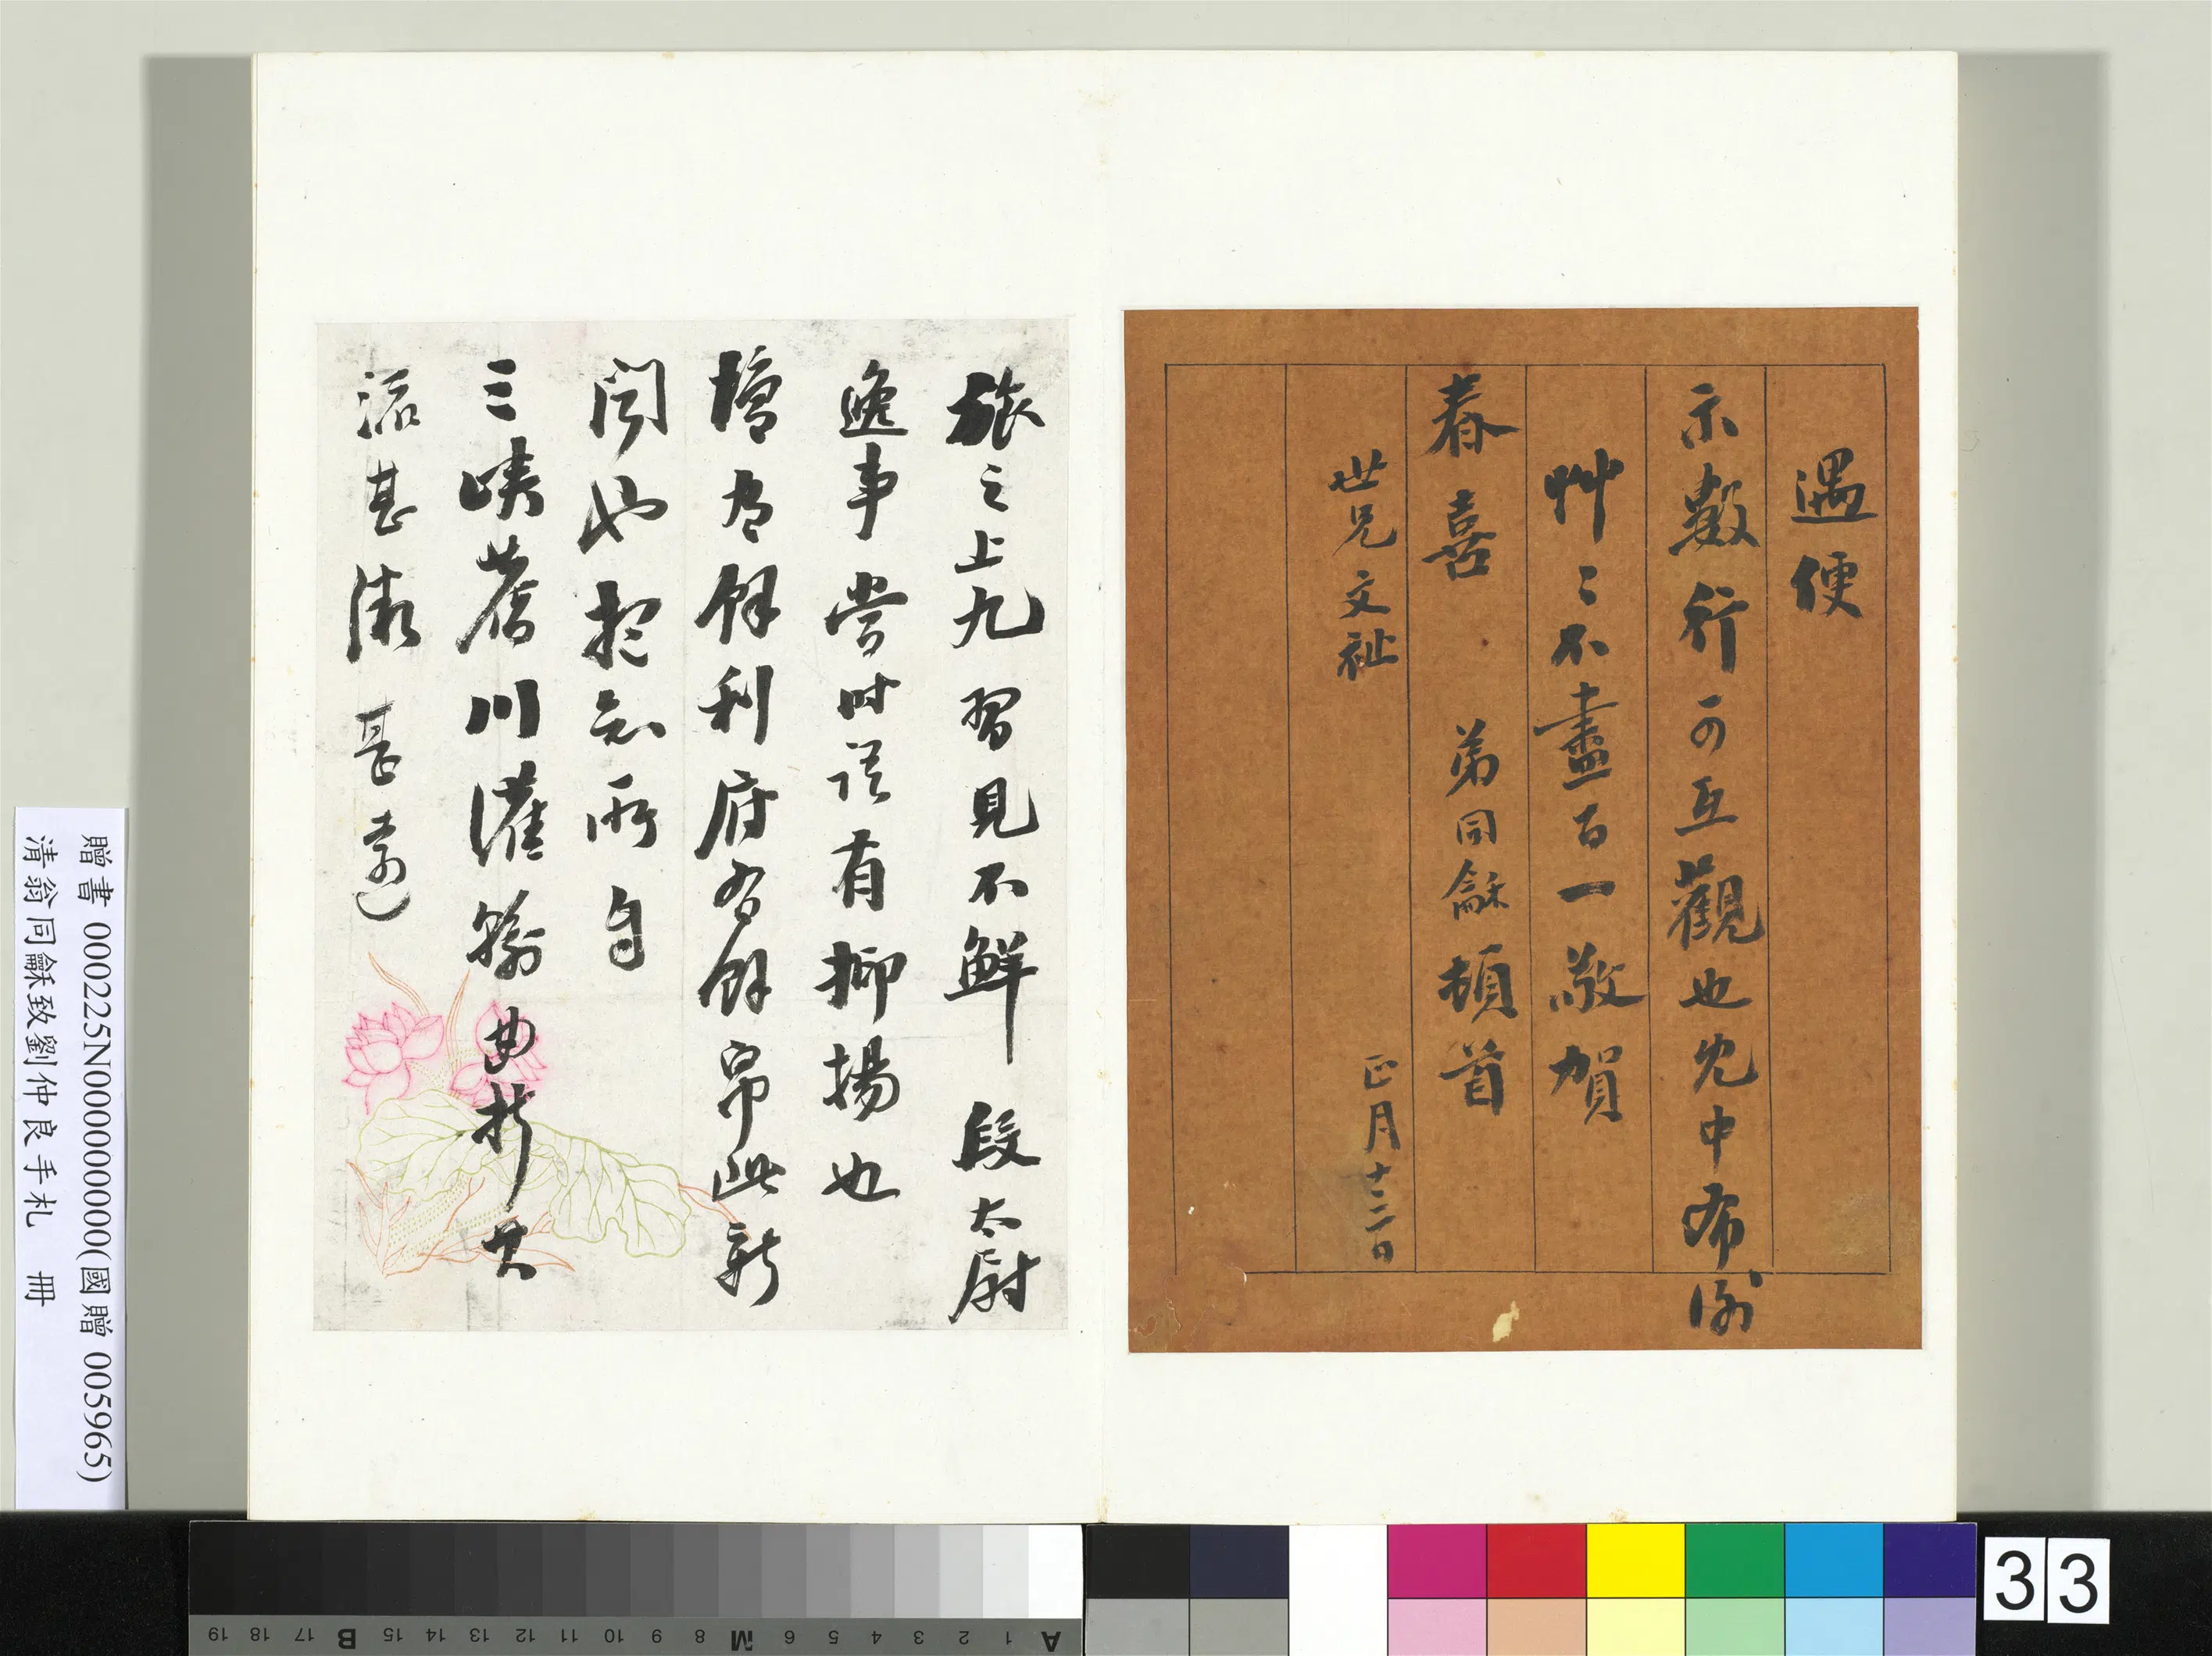 遇便
示數行可互觀也冗中布謝
艸々不盡百一敬賀
春喜 弟同龢頓首
世兄文祉 正月十二日
旅之上九習見不鮮段太尉
逸事當時語有抑揚也
有餘利府有餘帛此新
聞也 所自
三峽舊川灌輸曲折其
流甚 甚遠
贈書 000225N000000000(國贈 005965)
清翁同龢致劉仲良手札 冊
33
A 1 2 3 4 5 6 M 8 9 10 11 12 13 14 15 B 17 18 19